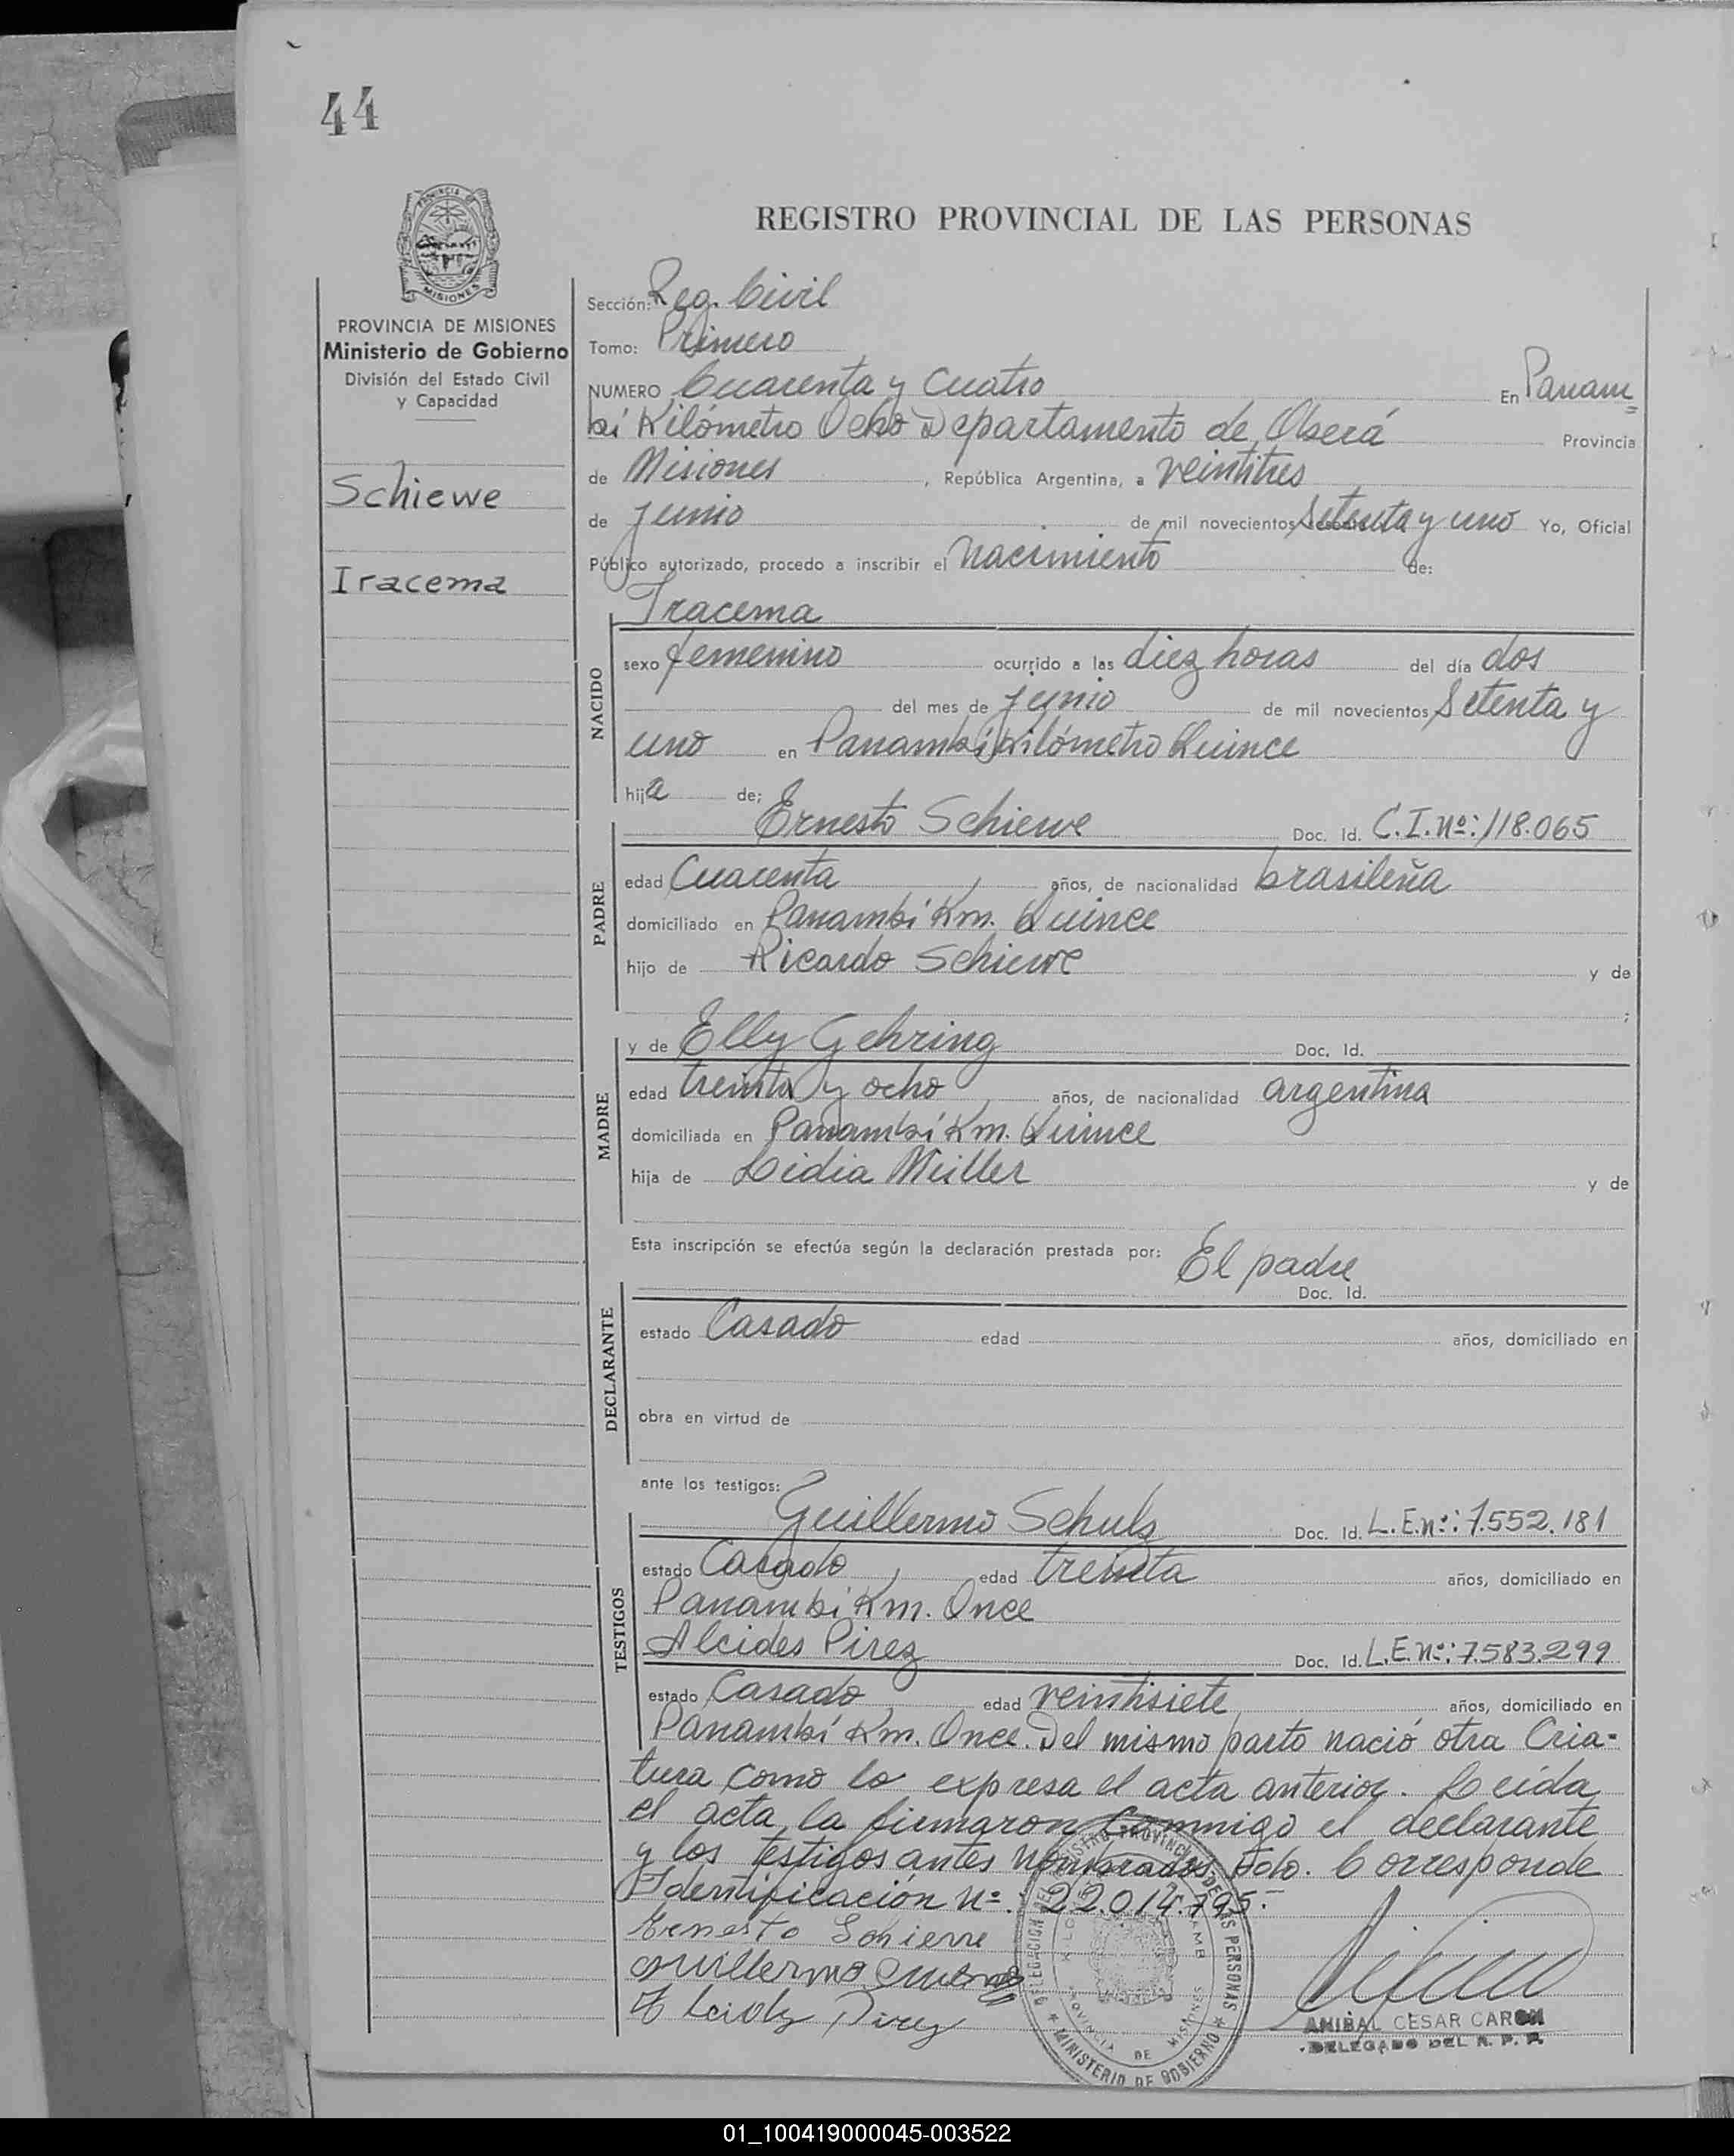 44
PROVINCIA
MISIONES
REGISTRO PROVINCIAL DE LAS PERSONAS
PROVINCIA DE MISIONES
Ministerio de Gobierno
División del Estado Civil
y Capacidad
Schiewe
Iracema
Sección: Reg. Civil
Tomo: Primero
NUMERO Cuarenta y Cuatro En Panam=
bí Kilómetro Ocho Departamento de Oberá Provincia
de Misiones, República Argentina, a veintitres
de junio de mil novecientos setenta y uno Yo, Oficial
Público autorizado, procedo a inscribir el nacimiento de:
Iracema
NACIDO
sexo femenino ocurrido a las diez horas del día dos
del mes de junio de mil novecientos Setenta y
uno en Panambí Kilómetro Quince
hija de:
Ernesto Schiewe Doc. Id. C.I. Nº: 118.065
PADRE
edad Cuarenta años, de nacionalidad brasileña
domiciliado en Panambí Km. Quince
hijo de Ricardo Schiewe y de
;
y de Elly Gehring Doc. Id.
MADRE
edad treinta y ocho años, de nacionalidad argentina
domiciliada en Panambí Km. Quince
hija de Lidia Müller y de
Esta inscripción se efectúa según la declaración prestada por: El padre
Doc. Id.
DECLARANTE
estado Casado edad años, domiciliado en
obra en virtud de
ante los testigos:
Guillermo Schulz Doc. Id. L.E. nº: 7.552.181
TESTIGOS
estado Casado edad treinta años, domiciliado en
Panambí Km. Once
Alcides Pirez Doc. Id. L.E. Nº: 7.583.299
estado Casado edad veintisiete años, domiciliado en
Panambí Km. Once. Del mismo parto nació otra Cria-
tura como lo expresa el acta anterior. Leída
el acta, la firmaron conmigo el declarante
y los testigos antes nombrados. Corresponde
Identificación Nº: 22.014.795.-
Ernesto Schiewe
Guillermo
Pirez
MINISTERIO DE GOBIERNO
PROVINCIA DE MISIONES
ANIBAL CESAR CARON
DELEGADO DEL R. P. P.
01_100419000045-003522